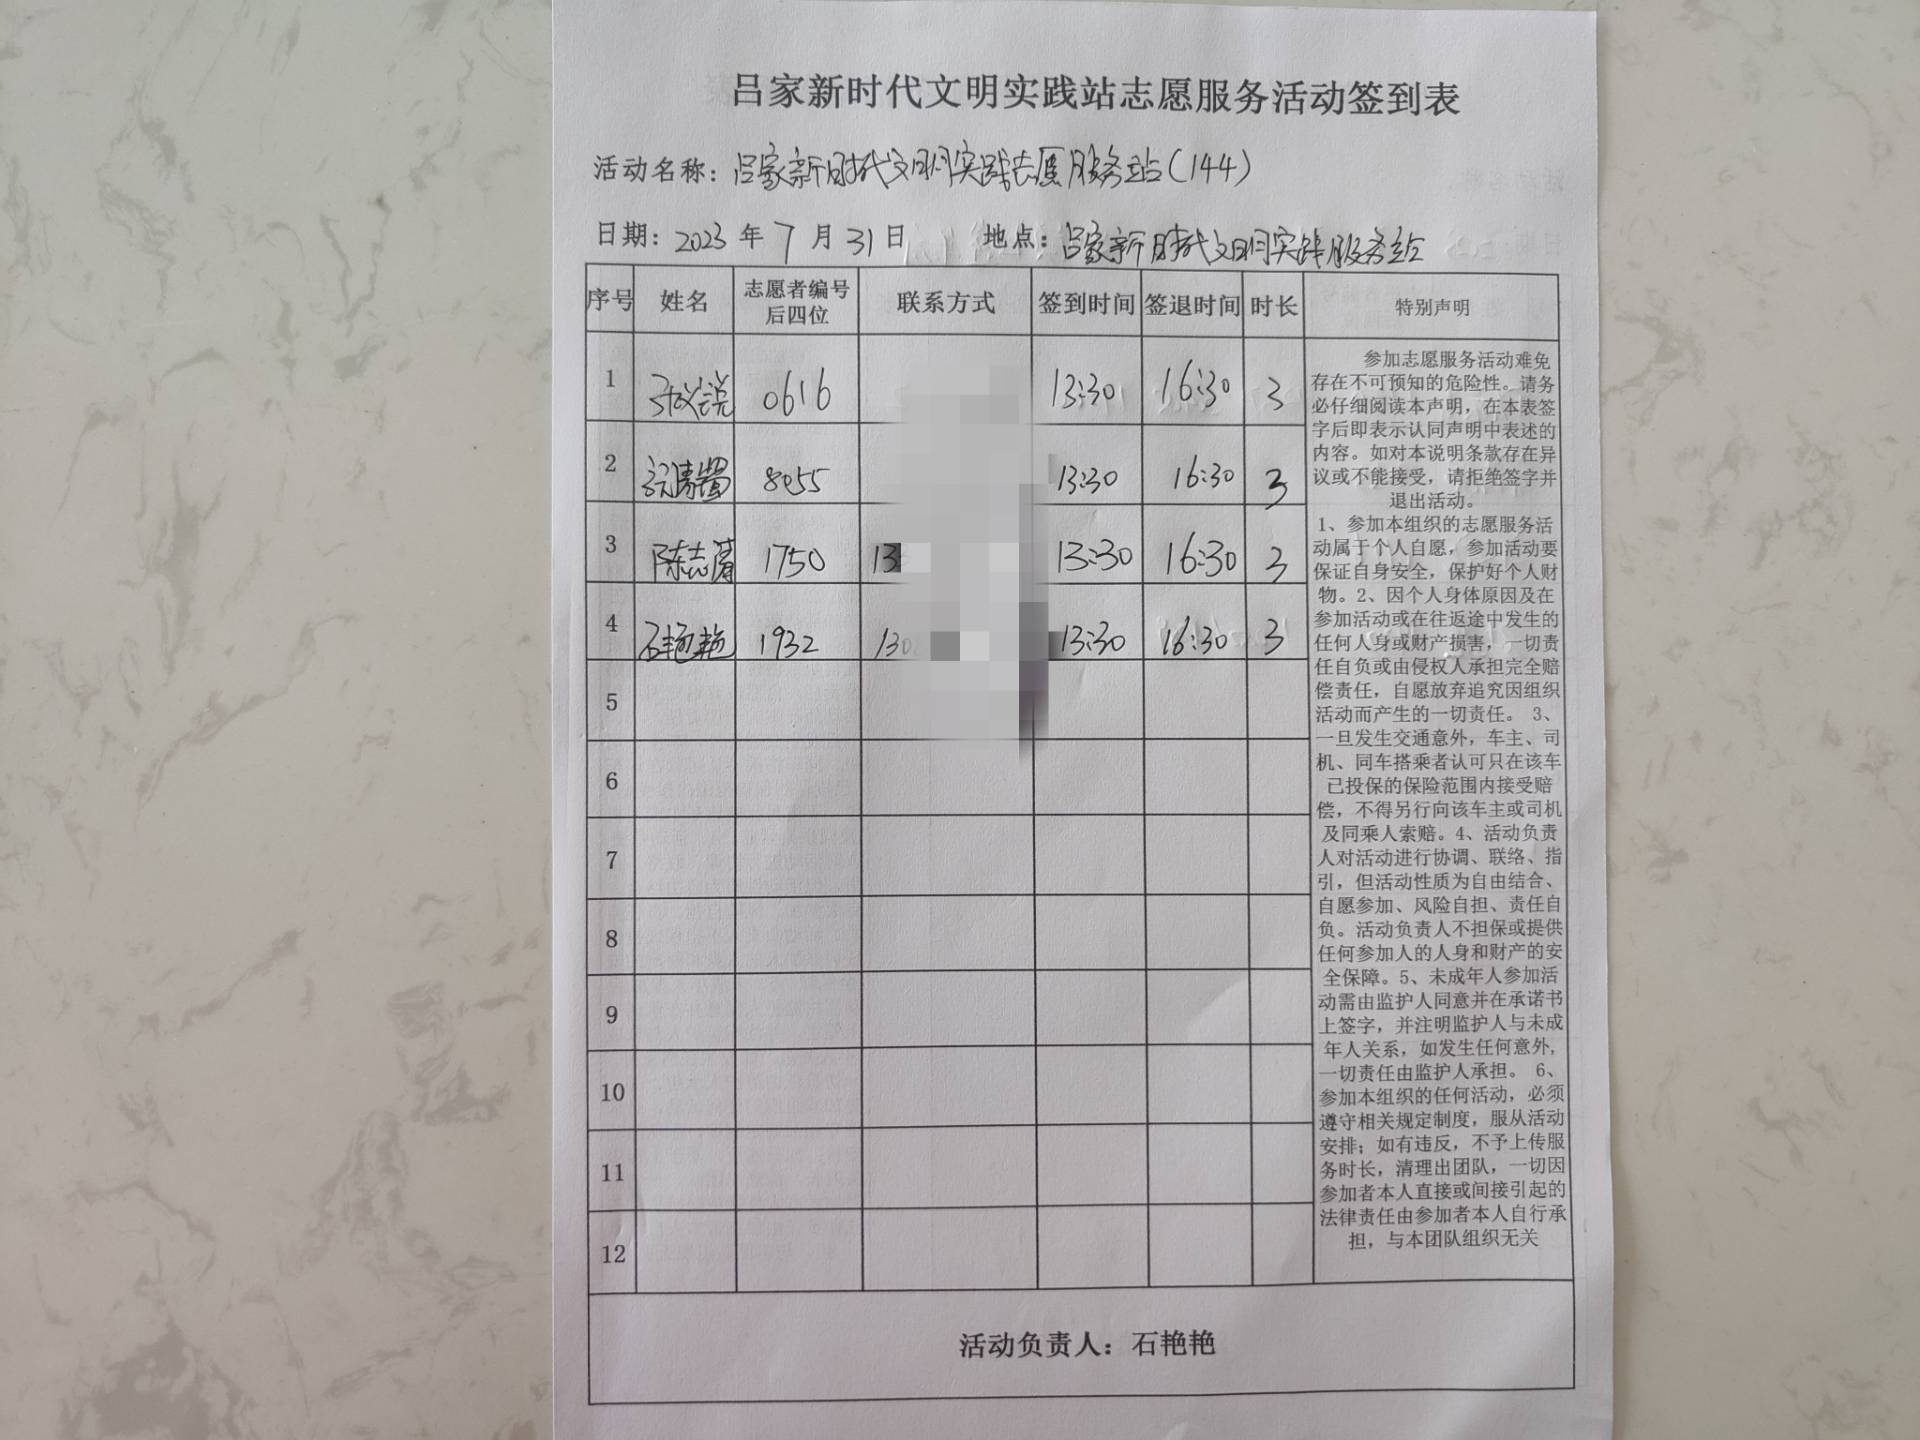 吕家新时代文明实践站志愿服务活动签到表
活动名称：吕家新时代文明实践志愿服务站（144）
日期：2023 年 7 月 31 日 地点：吕家新时代文明实践服务站
序号 姓名 志愿者编号后四位 联系方式 签到时间 签退时间 时长 特别声明
1 0616 13:30 16:30 3
2 8055 13:30 16:30 3
3 陈志 1750 13 13:30 16:30 3
4 石艳艳 1932 130 13:30 16:30 3
5
6
7
8
9
10
11
12
参加志愿服务活动难免
存在不可预知的危险性。请务
必仔细阅读本声明，在本表签
字后即表示认同声明中表述的
内容。如对本说明条款存在异
议或不能接受，请拒绝签字并
退出活动。
1、参加本组织的志愿服务活
动属于个人自愿，参加活动要
保证自身安全，保护好个人财
物。2、因个人身体原因及在
参加活动或在往返途中发生的
任何人身或财产损害，一切责
任自负或由侵权人承担完全赔
偿责任，自愿放弃追究因组织
活动而产生的一切责任。 3、
一旦发生交通意外，车主、司
机、同车搭乘者认可只在该车
已投保的保险范围内接受赔
偿，不得另行向该车主或司机
及同乘人索赔。4、活动负责
人对活动进行协调、联络、指
引，但活动性质为自由结合、
自愿参加、风险自担、责任自
负。活动负责人不担保或提供
任何参加人的人身和财产的安
全保障。5、未成年人参加活
动需由监护人同意并在承诺书
上签字，并注明监护人与未成
年人关系，如发生任何意外，
一切责任由监护人承担。 6、
参加本组织的任何活动，必须
遵守相关规定制度，服从活动
安排；如有违反，不予上传服
务时长，清理出团队，一切因
参加者本人直接或间接引起的
法律责任由参加者本人自行承
担，与本团队组织无关
活动负责人：石艳艳